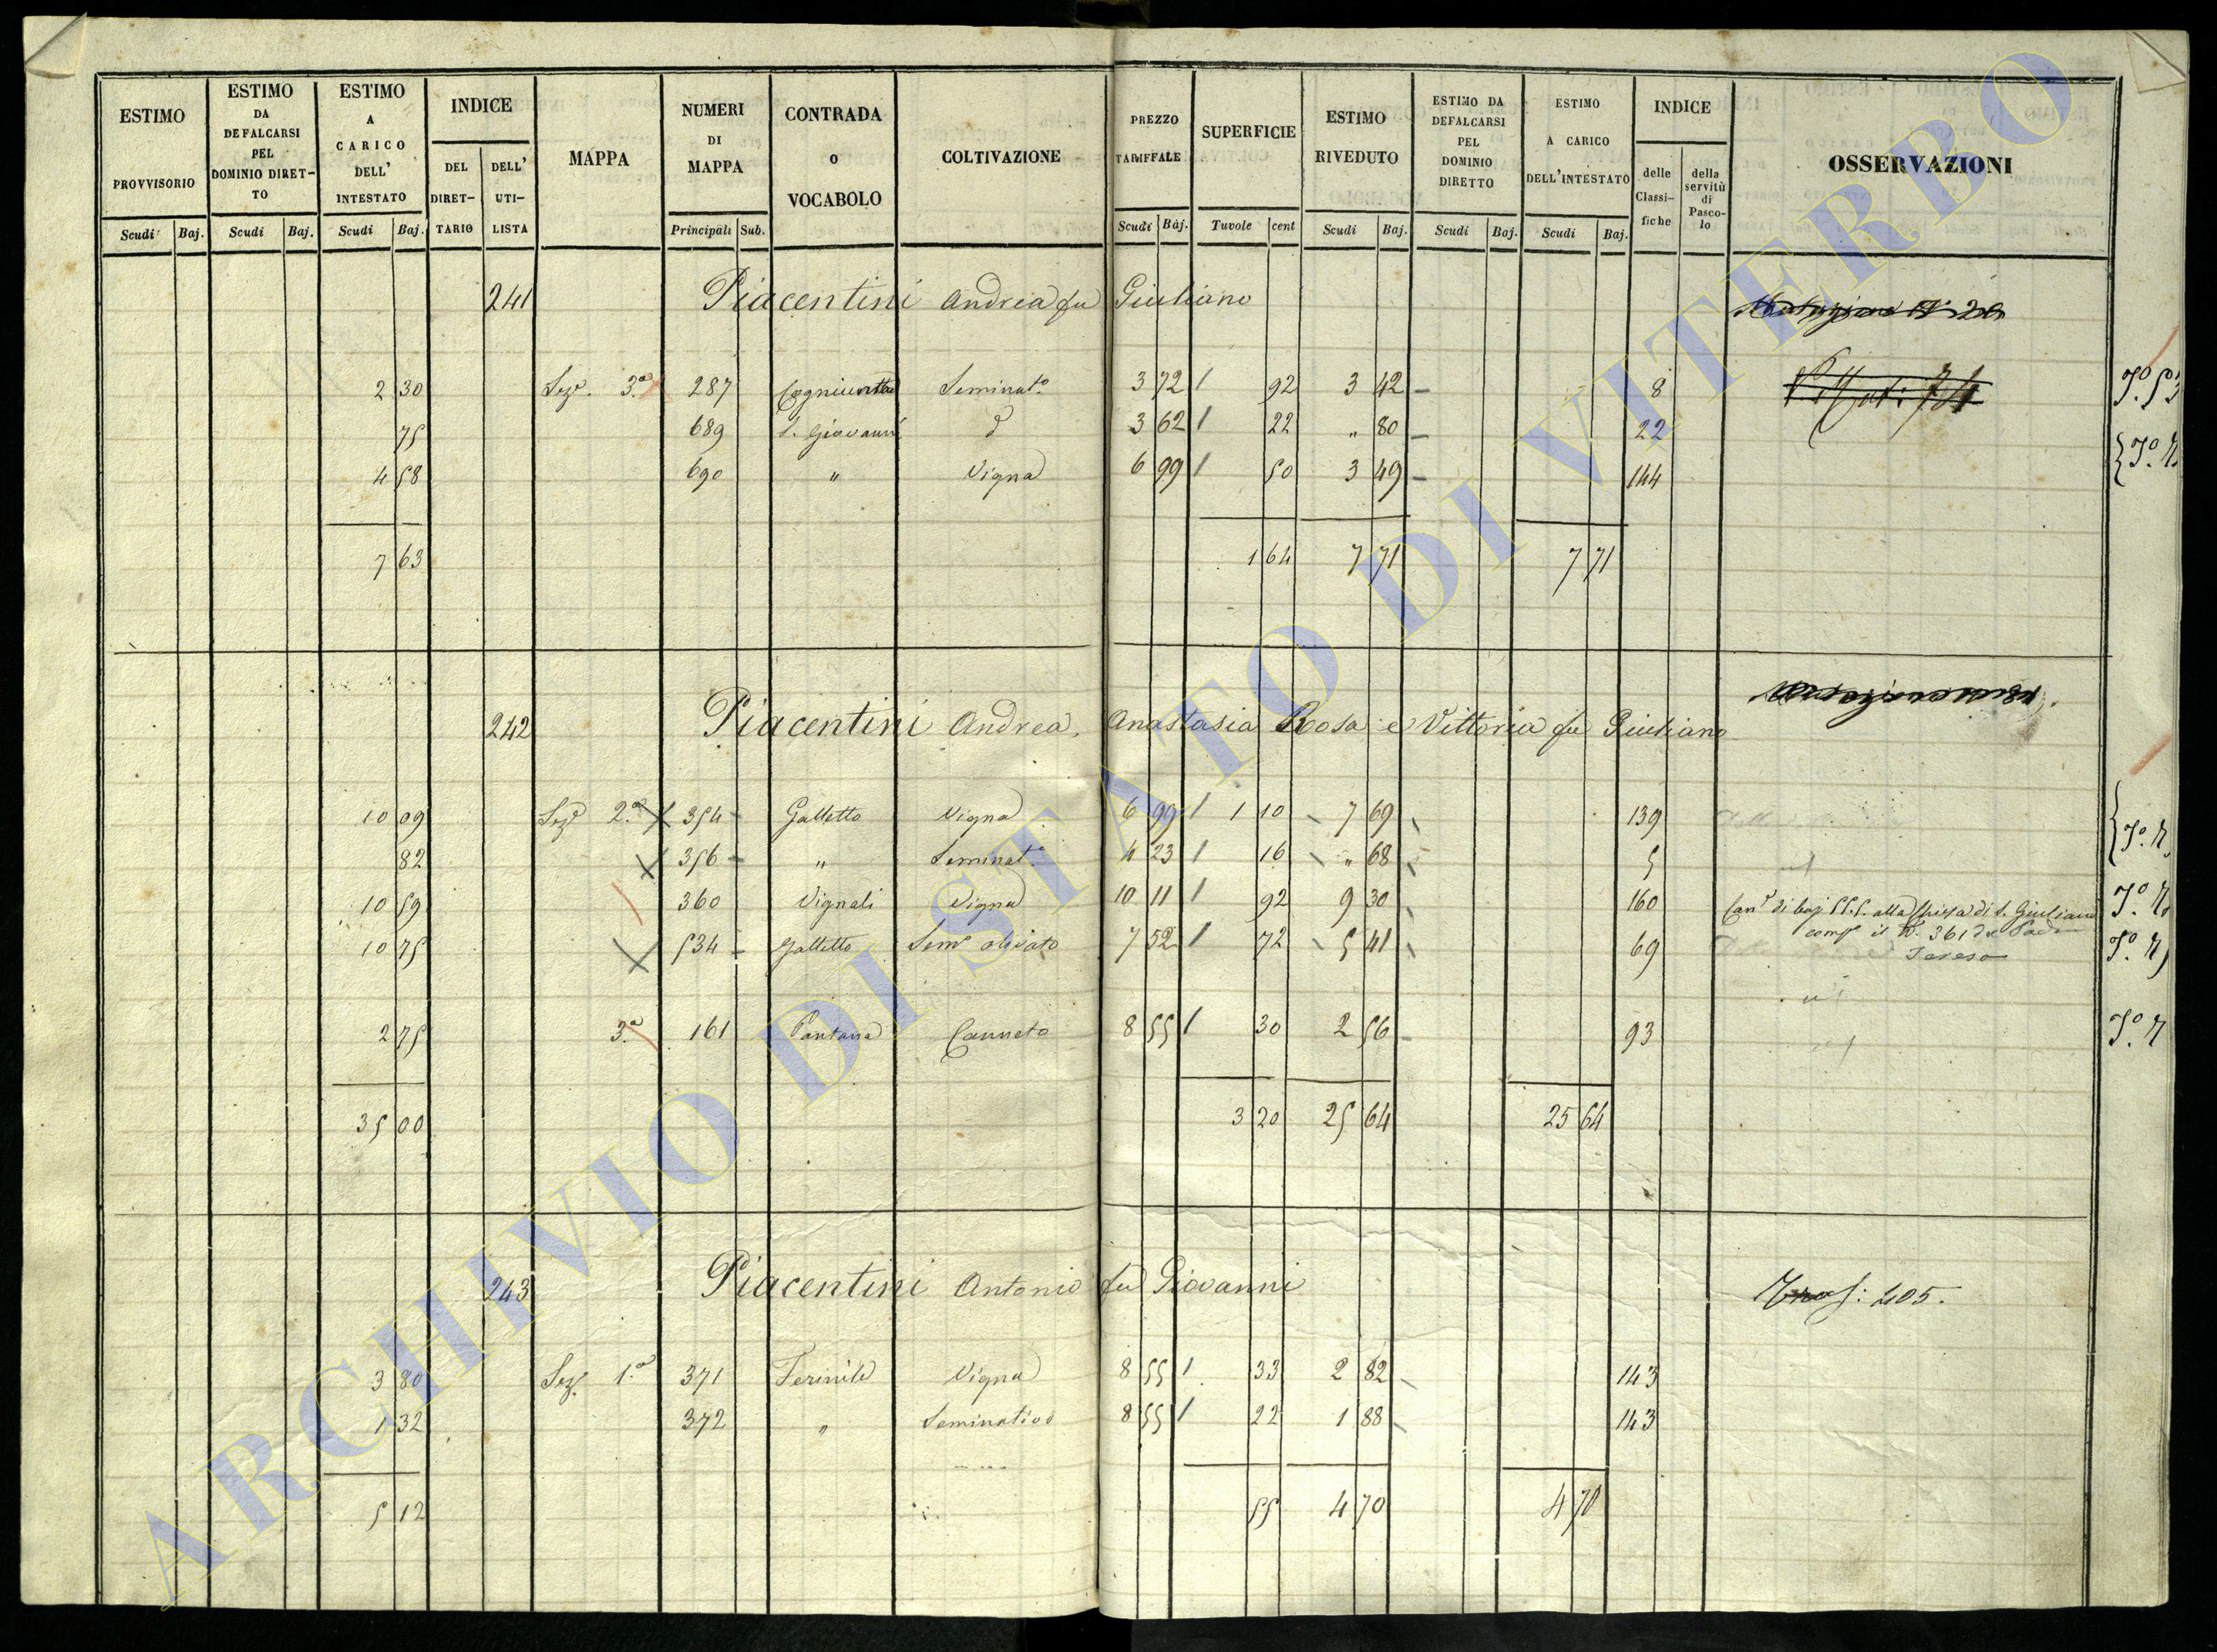 ESTIMO PROVVISORIO | ESTIMO DA DEFALCARSI PEL DOMINIO DIRET-TO | ESTIMO A CARICO DELL' INTESTATO | INDICE DEL DIRET-TARIO | DELL' UTI-LISTA | MAPPA | NUMERI DI MAPPA | CONTRADA O VOCABOLO | COLTIVAZIONE | PREZZO TARIFFALE | SUPERFICIE | ESTIMO RIVEDUTO | ESTIMO DA DEFALCARSI PEL DOMINIO DIRETTO | ESTIMO A CARICO DELL'INTESTATO | INDICE delle Classi-fiche | della servitù di Pasco-lo | OSSERVAZIONI
Scudi Baj. Scudi Baj. Scudi Baj. Principali Sub. Scudi Baj. Tavole cent Scudi Baj. Scudi Baj. Scudi Baj.
241 Piacentini Andrea fu Giuliano
2 30 Sezᵉ. 3.ª 287 Seminatº 3 72 / 92 3 42 8
75 689 S. Giovanni d 3 62 / 22 " 80 22
4 58 690 " Vigna 6 99 / 50 3 49 144
7 63 1 64 7 71 7 71
242 Piacentini Andrea, Anastasia Rosa e Vittoria fu Giuliano
10 09 Sezᵉ 2.ª 354 Galletto Vigna 6 99 / 1 10 7 69 139
82 356 " Seminatº 4 23 / 16 " 68 5
10 59 360 Vignali Vigna 10 11 / 92 9 30 160 Canᵉ di baj 55.5. alla Chiesa di S. Giuliano
10 75 534 Galletto Semᵉ olivato 7 52 / 72 5 41 69 compº il N. 361
2 75 3.ª 161 Pantana Canneto 8 55 / 30 2 56 93
35 00 3 20 25 64 25 64
243 Piacentini Antonio fu Giovanni Trasf: 405.
3 80 Sez. 1.ª 371 Ferinile Vigna 8 55 / 33 2 82 143
1 32 372 " Seminativo 8 55 / 22 1 88 143
5 12 55 4 70 4 70
ARCHIVIO DI STATO DI VITERBO